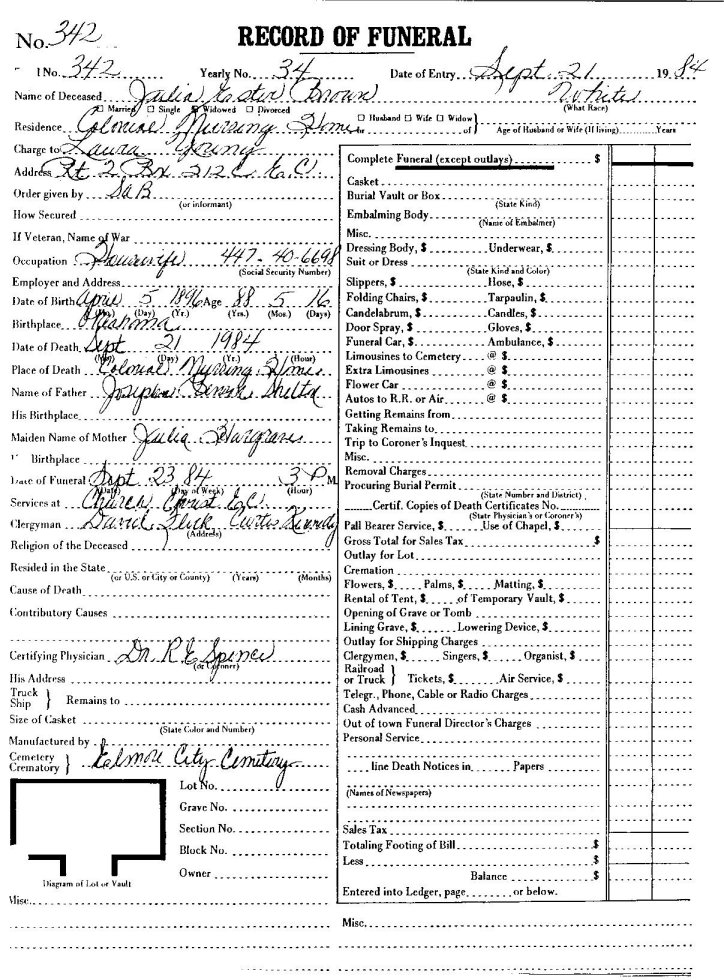 No. 342
RECORD OF FUNERAL
1 No. 342 Yearly No. 34 Date of Entry Sept. 21 1984
Name of Deceased Julia Ester Brown White
☐ Married ☐ Single Widowed ☐ Divorced (What Race)
Residence Colonial Nursing Home ☐ Husband ☐ Wife ☐ Widow } of Age of Husband or Wife (If living) Years
Charge to Laura Young
Address Rt 2 Box 212C E.C.
Order given by
(or informant)
How Secured
If Veteran, Name of War
Occupation Housewife 447-40-6698
(Social Security Number)
Employer and Address
Date of Birth April 5 1896 Age 88 5 16
(Mo.) (Day) (Yr.) (Yrs.) (Mos.) (Days)
Birthplace Oklahoma
Date of Death Sept 21 1984
(Mo) (Day) (Yr.) (Hour)
Place of Death Colonial Nursing Home
Name of Father Joseph Shelton
His Birthplace
Maiden Name of Mother Julia Hargraves
Birthplace
Date of Funeral Sept 23 84 3 P M
(Date) (Day of Week) (Hour)
Services at Church Christ E.C.
Clergyman David Flick Curtis
(Address)
Religion of the Deceased
Resided in the State
(or U.S. or City or County) (Years) (Months)
Cause of Death
Contributory Causes
Certifying Physician Dr. R E Spence
(or Coroner)
His Address
Truck
Ship } Remains to
Size of Casket
(State Color and Number)
Manufactured by
Cemetery
Crematory } Elmore City Cemetery
Lot No.
Grave No.
Section No.
Block No.
Owner
Diagram of Lot or Vault
Misc.
Complete Funeral (except outlays) $
Casket
Burial Vault or Box
(State Kind)
Embalming Body
(Name of Embalmer)
Misc.
Dressing Body, $ Underwear, $
Suit or Dress
(State Kind and Color)
Slippers, $ Hose, $
Folding Chairs, $ Tarpaulin, $
Candelabrum, $ Candles, $
Door Spray, $ Gloves, $
Funeral Car, $ Ambulance, $
Limousines to Cemetery @ $
Extra Limousines @ $
Flower Car @ $
Autos to R.R. or Air @ $
Getting Remains from
Taking Remains to
Trip to Coroner's Inquest
Misc.
Removal Charges
Procuring Burial Permit
(State Number and District)
Certif. Copies of Death Certificates No.
(State Physician's or Coroner's)
Pall Bearer Service, $ Use of Chapel, $
Gross Total for Sales Tax $
Outlay for Lot
Cremation
Flowers, $ Palms, $ Matting, $
Rental of Tent, $ of Temporary Vault, $
Opening of Grave or Tomb
Lining Grave, $ Lowering Device, $
Outlay for Shipping Charges
Clergymen, $ Singers, $ Organist, $
Railroad
or Truck } Tickets, $ Air Service, $
Telegr., Phone, Cable or Radio Charges
Cash Advanced
Out of town Funeral Director's Charges
Personal Service
line Death Notices in Papers
(Names of Newspapers)
Sales Tax
Totaling Footing of Bill $
Less $
Balance $
Entered into Ledger, page or below.
Misc.